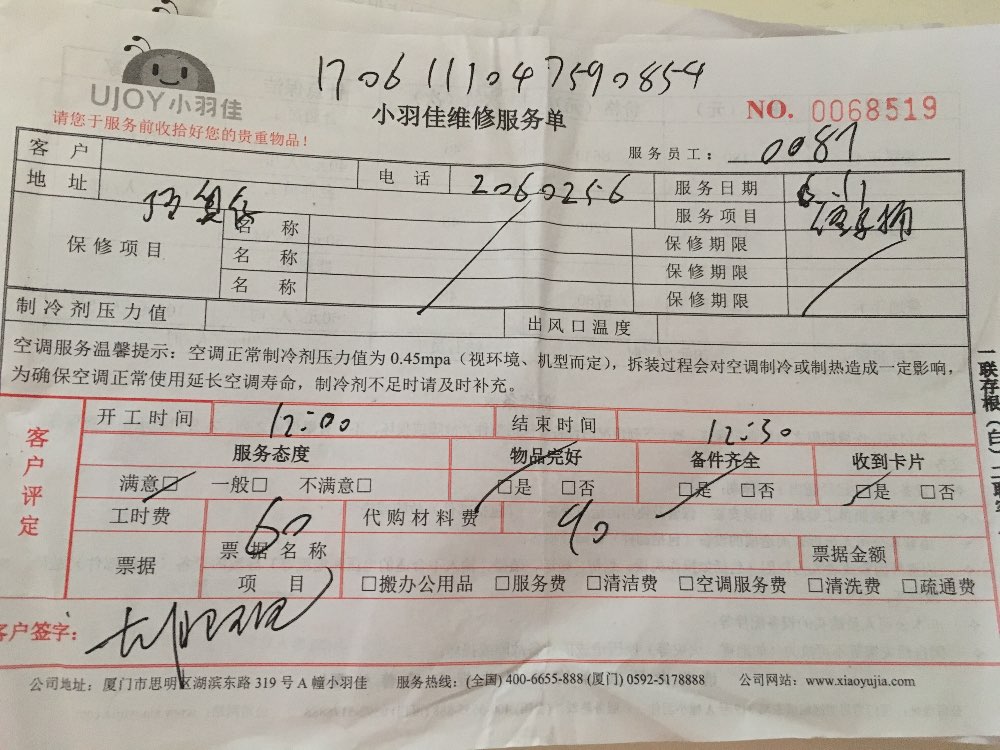 1706111047590854
UJOY小羽佳
小羽佳维修服务单
NO. 0068519
请您于服务前收拾好您的贵重物品！
服务员工： 0087
客 户
电 话 2060256 服务日期 6.11
地 址
服务项目
保修项目 名 称 保修期限
名 称 保修期限
名 称 保修期限
制冷剂压力值 出风口温度
空调服务温馨提示：空调正常制冷剂压力值为 0.45mpa（视环境、机型而定），拆装过程会对空调制冷或制热造成一定影响，
为确保空调正常使用延长空调寿命，制冷剂不足时请及时补充。
一联存根（白）二联
客户评定
开工时间 12:00 结束时间 12:30
服务态度 物品完好 备件齐全 收到卡片
满意□ 一般□ 不满意□ □是 □否 □是 □否 □是 □否
工时费 60 代购材料费 90
票据 票据名称 票据金额
项 目 □搬办公用品 □服务费 □清洁费 □空调服务费 □清洗费 □疏通费
客户签字：
公司地址：厦门市思明区湖滨东路 319 号 A 幢小羽佳 服务热线：(全国) 400-6655-888 (厦门) 0592-5178888 公司网站：www.xiaoyujia.com